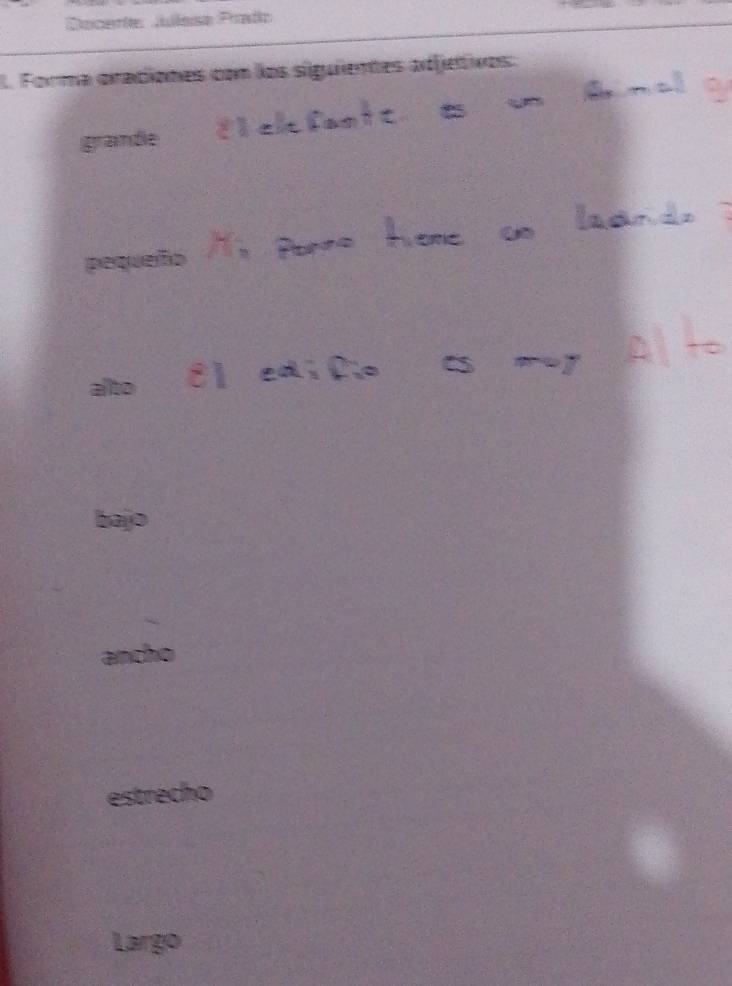 Docente: Julissa Prado
I. Forma oraciones con los siguientes adjetivos:
grande El elefante es un animal g
pequeño Mi perro tiene un
alto El edificio es muy Alto
bajo
ancho
estrecho
Largo